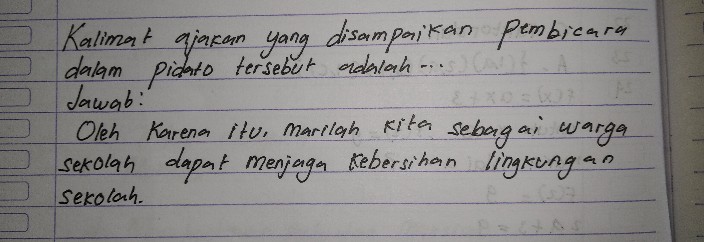 Kalimat ajakan yang disampaikan Pembicara
dalam pidato tersebut adalah...
Jawab:
Oleh Karena itu, marilah kita sebagai warga
sekolah dapat menjaga Kebersihan lingkungan
sekolah.